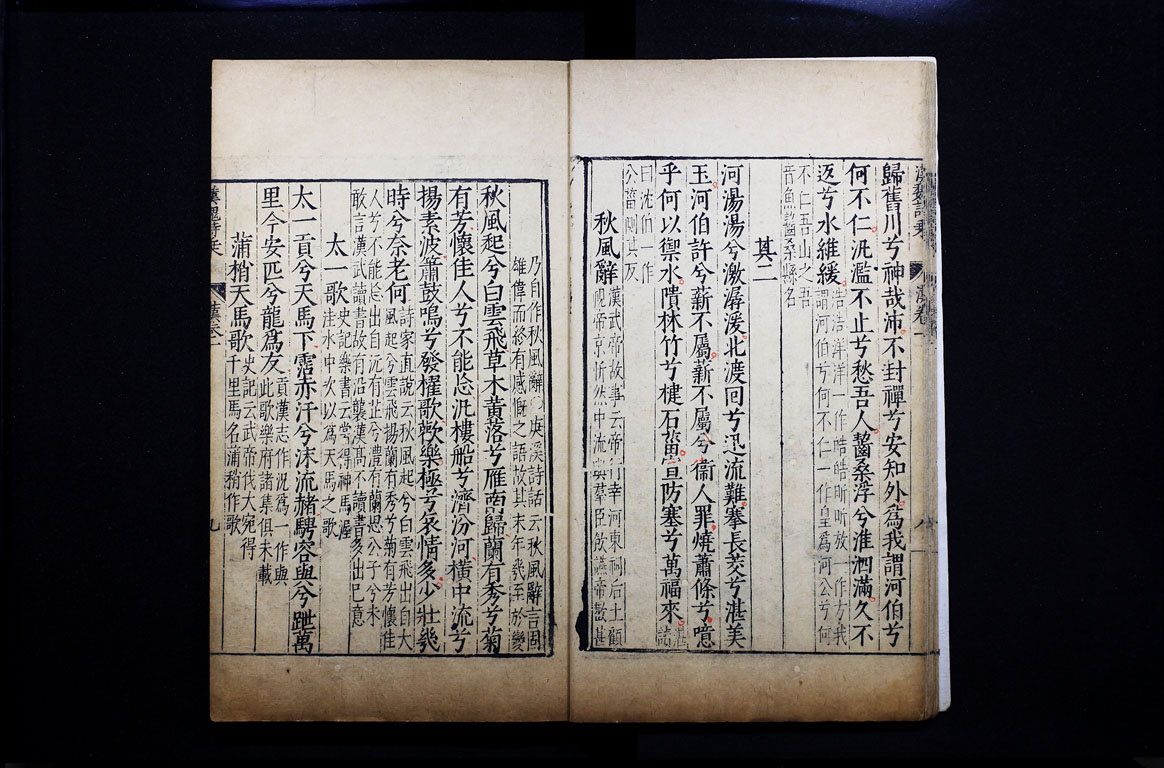 歸舊川兮神哉沛不封禪兮安知外爲我謂河伯兮
何不仁泛濫不止兮愁吾人齧桑浮兮淮泗滿久不
返兮水維緩浩浩洋洋一作皓皓旰旰放一作方我
謂河伯兮何不仁一作皇爲河公兮何
不仁吾山之吾
音魚齧桑縣名
其二
河湯湯兮激潺湲北渡回兮迅流難搴長茭兮湛美
玉河伯許兮薪不屬薪不屬兮衞人罪燒蕭條兮噫
乎何以禦水隤林竹兮楗石菑宣防塞兮萬福來湛
讀
曰沈伯一作
公菑則其反
秋風辭漢武帝故事云帝行幸河東祠后土顧
視帝京忻然中流與羣臣飲讌帝歡甚
乃自作秋風辭○庚溪詩話云秋風辭言固
雄偉而終有感慨之語故其末年幾至於變
秋風起兮白雲飛草木黃落兮雁南歸蘭有秀兮菊
有芳懷佳人兮不能忘泛樓船兮濟汾河橫中流兮
揚素波簫鼓鳴兮發櫂歌歡樂極兮哀情多少壯幾
時兮奈老何詩家直說云秋風起兮白雲飛出自大
風起兮雲飛揚蘭有秀兮菊有芳懷佳
人兮不能忘出自沅有芷兮澧有蘭思公子兮未
敢言漢武讀書故有沿襲漢高不讀書多出己意
太一歌史記樂書云嘗得神馬渥
洼水中次以爲天馬之歌
太一貢兮天馬下霑赤汗兮沫流赭騁容與兮跇萬
里今安匹兮龍爲友貢漢志作況爲一作與
此歌樂府諸集俱未載
蒲梢天馬歌史記云武帝伐大宛得
千里馬名蒲梢作歌
九